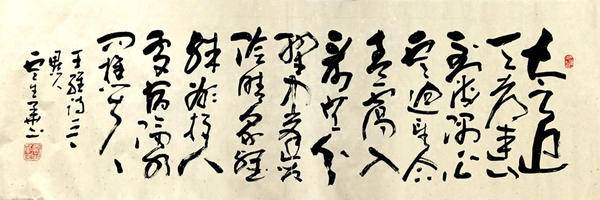 太乙近
天都連山
到海隅白
雲迴望合
青靄入
看無分
野中峰變
陰晴眾壑
殊欲投人
處宿隔水
問樵夫
王維詩